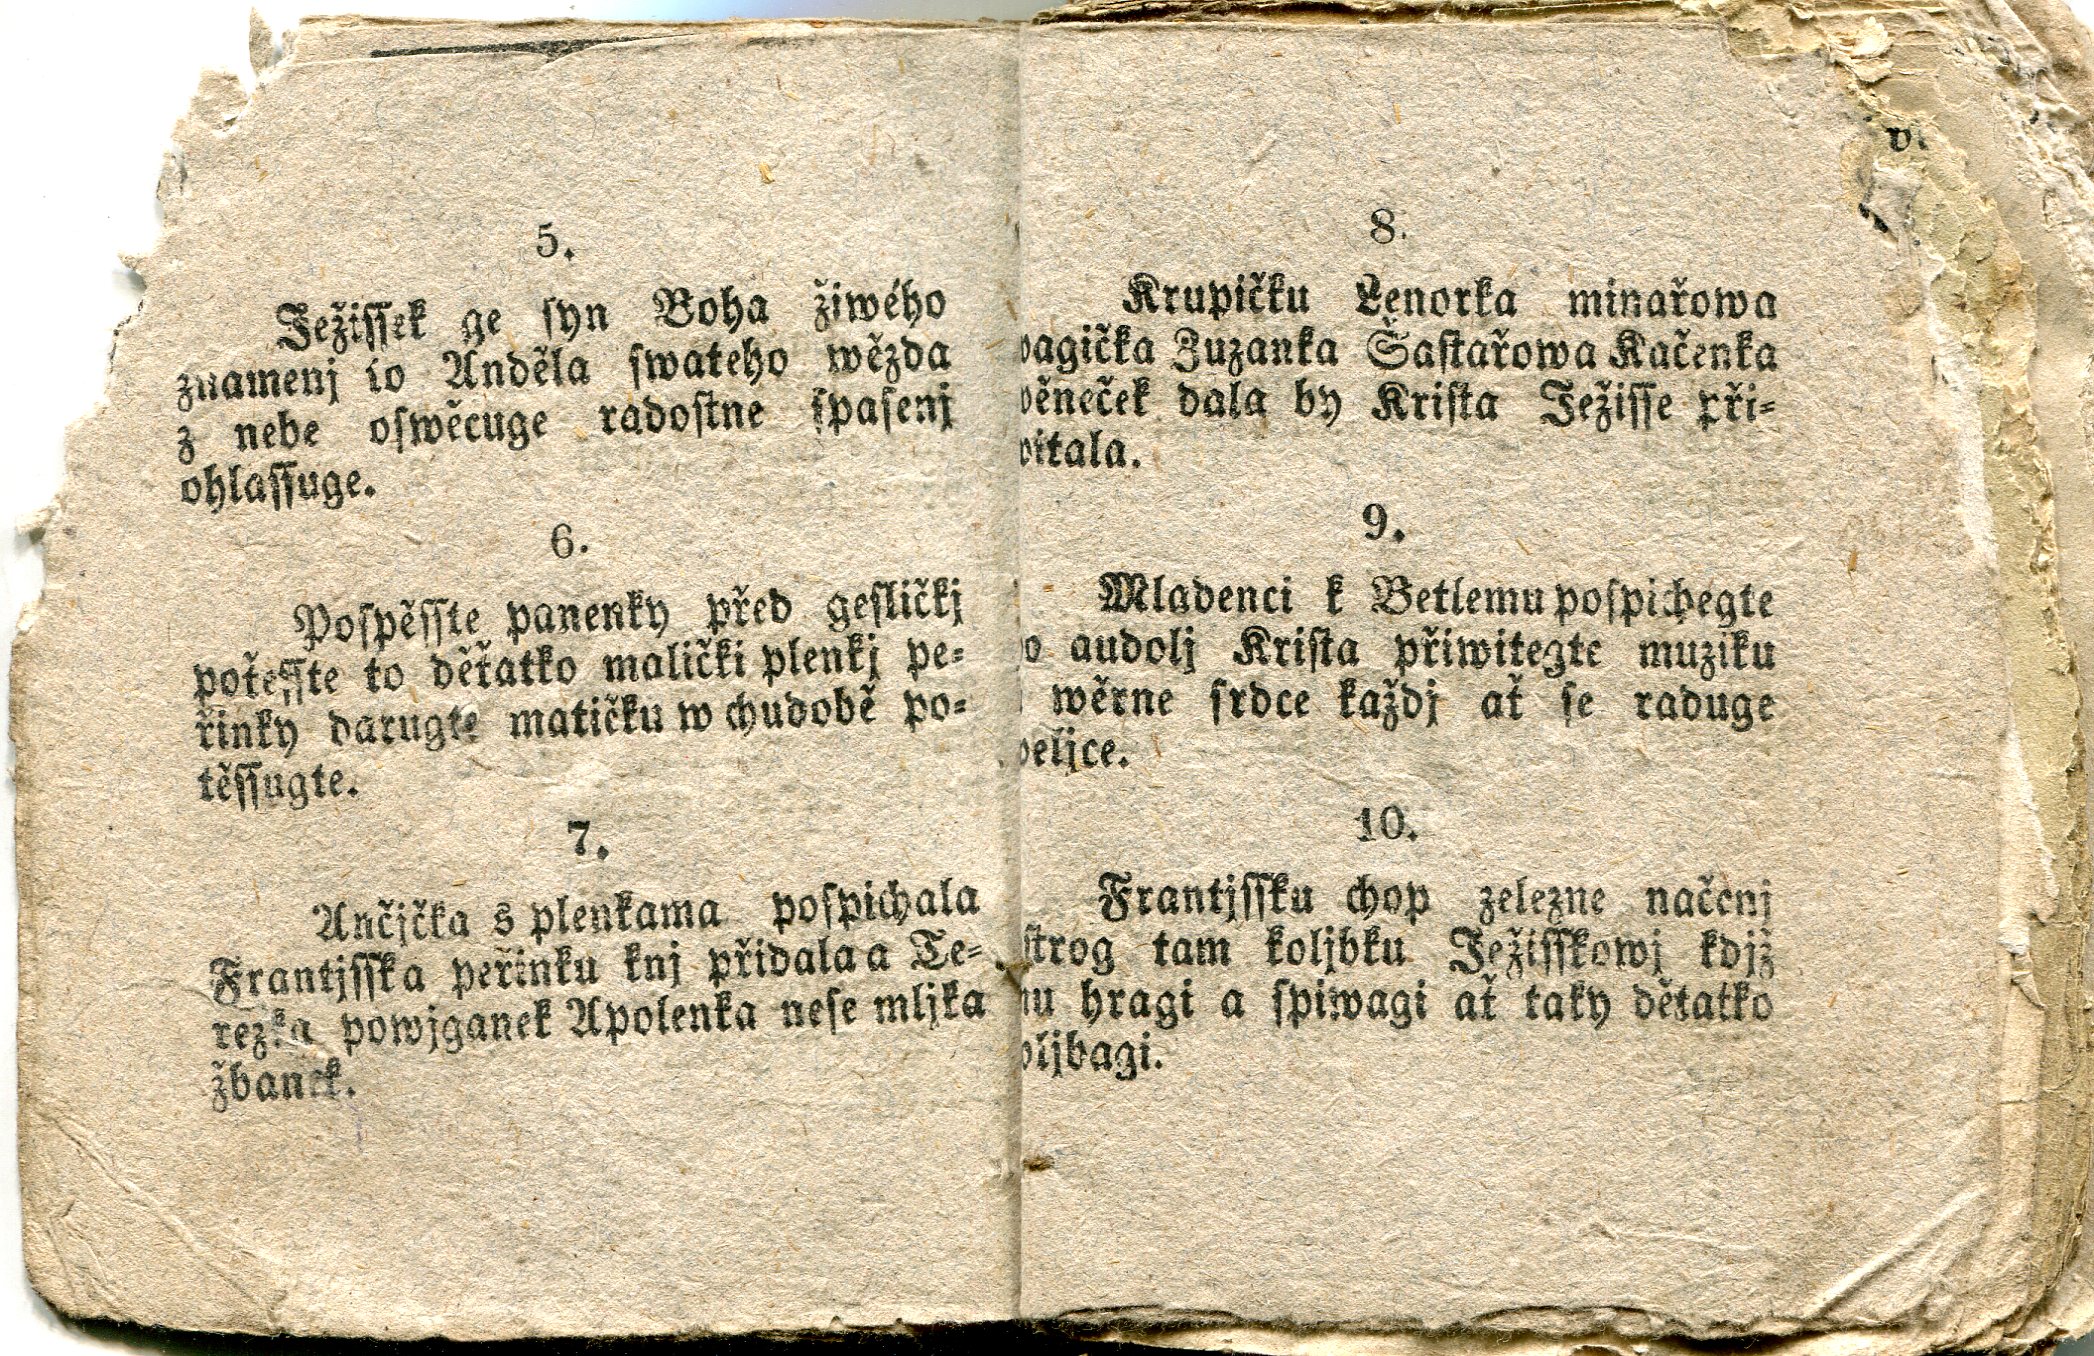 5.
Ježissek ge syn Boha žiwého
znamenj to Anděla swateho wězda
z nebe oswěcuge radostne spasenj
ohlassuge.
6.
Pospěsste panenky před gesličkj
potěsste to děťatko malički plenkj pe-
řinky darugte matičku w chudobě po-
těssugte.
7.
Ančjčka s plenkama pospichala
Frantjsska peřinku knj přidala a Te-
rezka powjganek Apolenka nese mljka
žbanek.
8.
Krupičku Lenorka minařowa
wagička Zuzanka Šastařowa Kačenka
wěneček dala by Krista Ježisse při-
witala.
9.
Mladenci k Betlemu pospichegte
audolj Krista přiwitegte muziku
wěrne srdce každj ať se raduge
weljce.
10.
Frantjssku chop zelezne načenj
strog tam koljbku Ježisskowj kdjž
mu hragi a spiwagi ať taky dětatko
koljbagi.